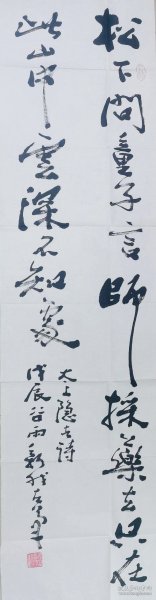 松下問童子言師採藥去只在
此山中雲深不知處
太上隐者詩
戊辰谷雨新秋